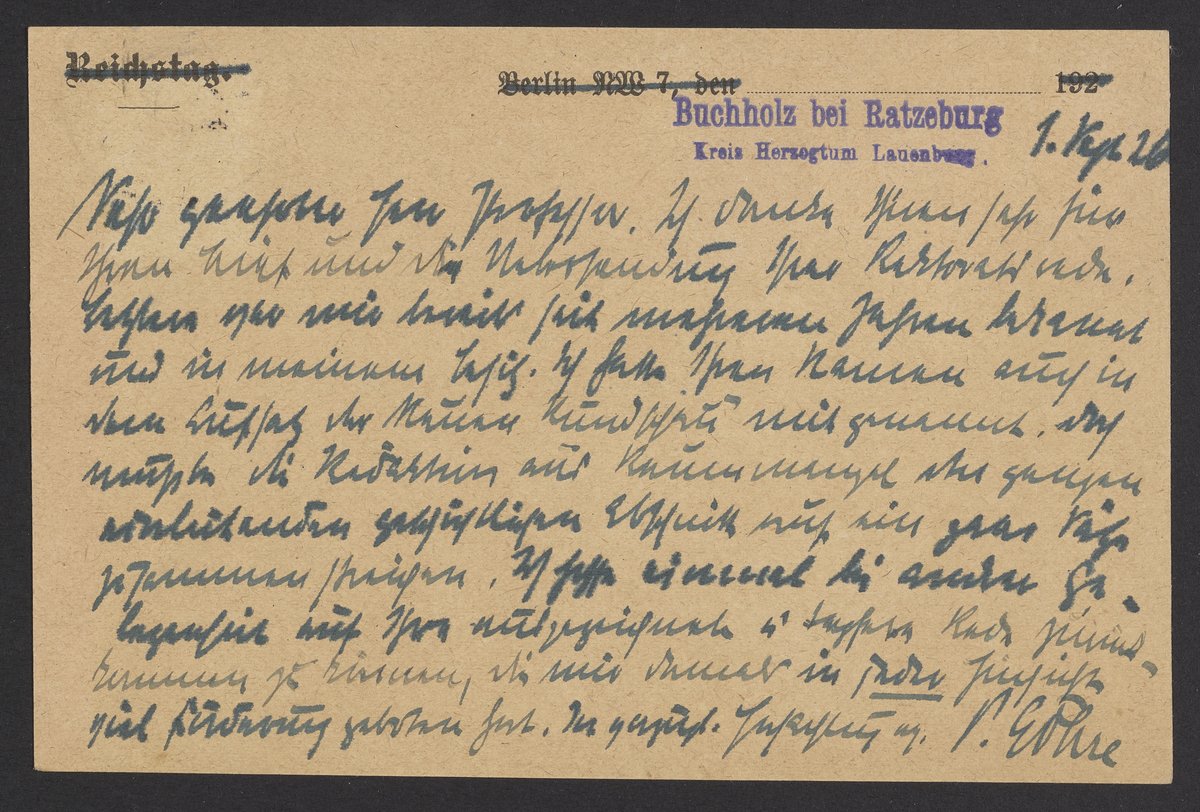 Reichstag.
Berlin NW 7, den 192
Buchholz bei Ratzeburg
Kreis Herzogtum Lauenburg.
1. Sept 26
Sehr geehrter Herr Professor. Ich danke Ihnen sehr für
Ihren Brief und die Uebersendung Ihrer Rektoratsrede.
Letztere war mir bereits seit mehreren Jahren bekannt
und in meinem Besitz. Ich hatte Ihren Namen auch in
dem Aufsatz der Neuen Rundschau mit genannt. doch
mußte die Redaktion aus Raummangel den ganzen
einleitenden geschichtlichen Abschnitt auf ein paar Sätze
zusammen streichen. Ich hoffe einmal bei andrer Ge-
legenheit auf Ihre ausgezeichnete u tapfere Rede zurück-
kommen zu können, die mir damals in jeder Hinsicht
viel Förderung geboten hat. In Hochachtung P. Göhre